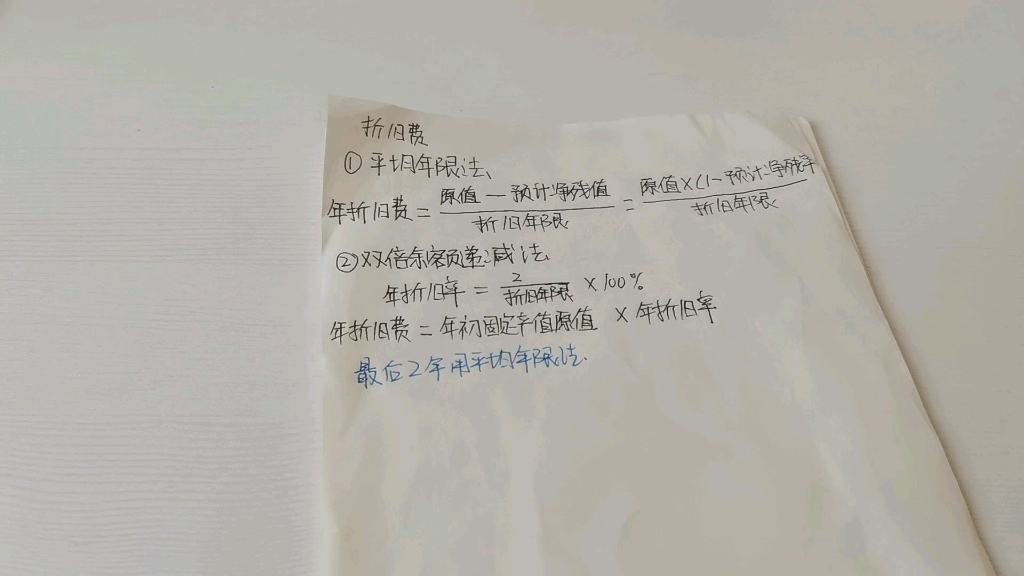 折旧费
①平均年限法
年折旧费 = (原值 — 预计净残值) / 折旧年限 = 原值×(1-预计净残率 / 折旧年限
②双倍余额递减法
年折旧率 = 2 / 折旧年限 × 100%
年折旧费 = 年初固定率值原值 × 年折旧率
最后2年用平均年限法.